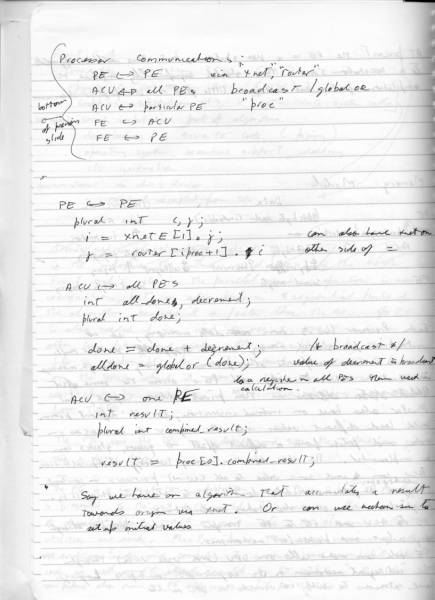 Processor communications;
PE ↔ PE via "xnet", "router"
ACU ↔ all PEs broadcast / globalor
ACU ↔ particular PE "proc"
FE ↔ ACU
FE ↔ PE
bottom
of previous
slide
PE ↔ PE
plural int i, j;
i = xnetE[1].j; can also have xnet on
j = router[iproc+1].i other side of =
ACU ↔ all PEs
int alldone, decrement;
plural int done;
done = done + decrement; /* broadcast */
alldone = globalor (done); value of decrement is broadcast
to a register in all PEs then used in
calculation.
ACU ↔ one PE
int result;
plural int combined_result;
result = proc[0].combined_result;
Say we have an algorithm that accumulates a result
towards origin via xnet. Or can use mechanism to
setup initial values